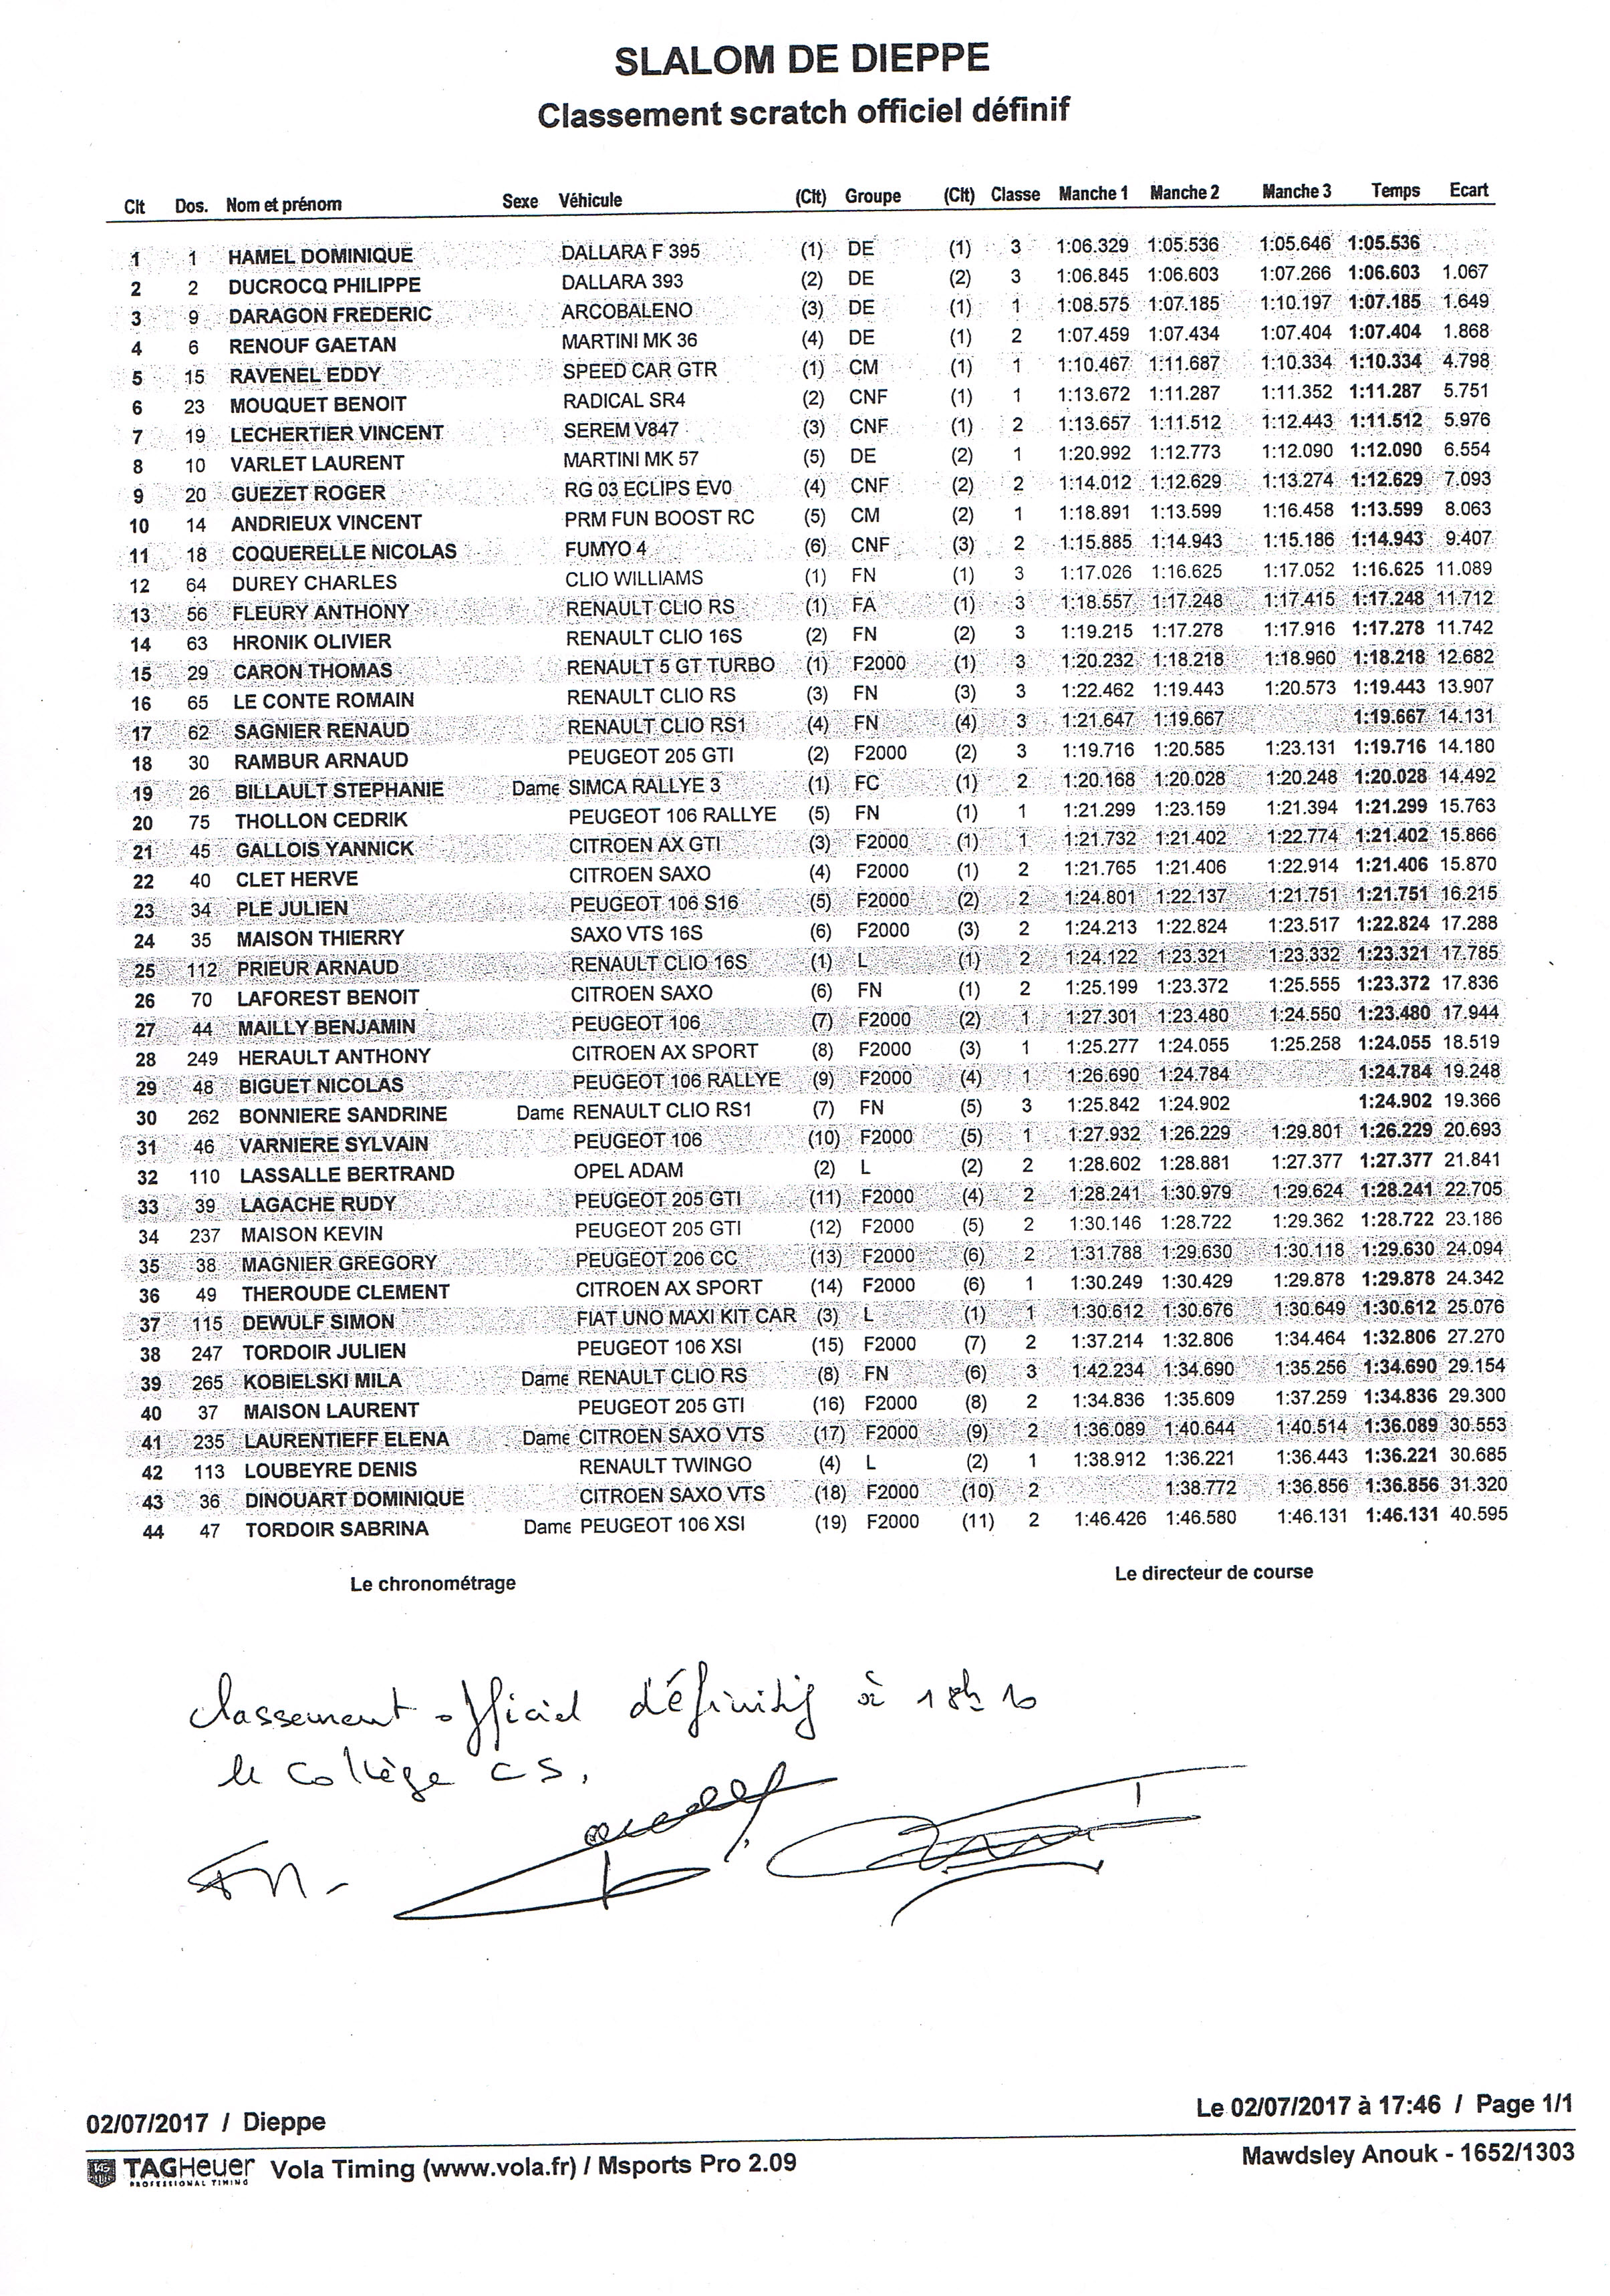 SLALOM DE DIEPPE
Classement scratch officiel définif
Clt Dos. Nom et prénom Sexe Véhicule (Clt) Groupe (Clt) Classe Manche 1 Manche 2 Manche 3 Temps Ecart
1 1 HAMEL DOMINIQUE DALLARA F 395 (1) DE (1) 3 1:06.329 1:05.536 1:05.646 1:05.536
2 2 DUCROCQ PHILIPPE DALLARA 393 (2) DE (2) 3 1:06.845 1:06.603 1:07.266 1:06.603 1.067
3 9 DARAGON FREDERIC ARCOBALENO (3) DE (1) 1 1:08.575 1:07.185 1:10.197 1:07.185 1.649
4 6 RENOUF GAETAN MARTINI MK 36 (4) DE (1) 2 1:07.459 1:07.434 1:07.404 1:07.404 1.868
5 15 RAVENEL EDDY SPEED CAR GTR (1) CM (1) 1 1:10.467 1:11.687 1:10.334 1:10.334 4.798
6 23 MOUQUET BENOIT RADICAL SR4 (2) CNF (1) 1 1:13.672 1:11.287 1:11.352 1:11.287 5.751
7 19 LECHERTIER VINCENT SEREM V847 (3) CNF (1) 2 1:13.657 1:11.512 1:12.443 1:11.512 5.976
8 10 VARLET LAURENT MARTINI MK 57 (5) DE (2) 1 1:20.992 1:12.773 1:12.090 1:12.090 6.554
9 20 GUEZET ROGER RG 03 ECLIPS EV0 (4) CNF (2) 2 1:14.012 1:12.629 1:13.274 1:12.629 7.093
10 14 ANDRIEUX VINCENT PRM FUN BOOST RC (5) CM (2) 1 1:18.891 1:13.599 1:16.458 1:13.599 8.063
11 18 COQUERELLE NICOLAS FUMYO 4 (6) CNF (3) 2 1:15.885 1:14.943 1:15.186 1:14.943 9.407
12 64 DUREY CHARLES CLIO WILLIAMS (1) FN (1) 3 1:17.026 1:16.625 1:17.052 1:16.625 11.089
13 56 FLEURY ANTHONY RENAULT CLIO RS (1) FA (1) 3 1:18.557 1:17.248 1:17.415 1:17.248 11.712
14 63 HRONIK OLIVIER RENAULT CLIO 16S (2) FN (2) 3 1:19.215 1:17.278 1:17.916 1:17.278 11.742
15 29 CARON THOMAS RENAULT 5 GT TURBO (1) F2000 (1) 3 1:20.232 1:18.218 1:18.960 1:18.218 12.682
16 65 LE CONTE ROMAIN RENAULT CLIO RS (3) FN (3) 3 1:22.462 1:19.443 1:20.573 1:19.443 13.907
17 62 SAGNIER RENAUD RENAULT CLIO RS1 (4) FN (4) 3 1:21.647 1:19.667 1:19.667 14.131
18 30 RAMBUR ARNAUD PEUGEOT 205 GTI (2) F2000 (2) 3 1:19.716 1:20.585 1:23.131 1:19.716 14.180
19 26 BILLAULT STEPHANIE Dame SIMCA RALLYE 3 (1) FC (1) 2 1:20.168 1:20.028 1:20.248 1:20.028 14.492
20 75 THOLLON CEDRIK PEUGEOT 106 RALLYE (5) FN (1) 1 1:21.299 1:23.159 1:21.394 1:21.299 15.763
21 45 GALLOIS YANNICK CITROEN AX GTI (3) F2000 (1) 1 1:21.732 1:21.402 1:22.774 1:21.402 15.866
22 40 CLET HERVE CITROEN SAXO (4) F2000 (1) 2 1:21.765 1:21.406 1:22.914 1:21.406 15.870
23 34 PLE JULIEN PEUGEOT 106 S16 (5) F2000 (2) 2 1:24.801 1:22.137 1:21.751 1:21.751 16.215
24 35 MAISON THIERRY SAXO VTS 16S (6) F2000 (3) 2 1:24.213 1:22.824 1:23.517 1:22.824 17.288
25 112 PRIEUR ARNAUD RENAULT CLIO 16S (1) L (1) 2 1:24.122 1:23.321 1:23.332 1:23.321 17.785
26 70 LAFOREST BENOIT CITROEN SAXO (6) FN (1) 2 1:25.199 1:23.372 1:25.555 1:23.372 17.836
27 44 MAILLY BENJAMIN PEUGEOT 106 (7) F2000 (2) 1 1:27.301 1:23.480 1:24.550 1:23.480 17.944
28 249 HERAULT ANTHONY CITROEN AX SPORT (8) F2000 (3) 1 1:25.277 1:24.055 1:25.258 1:24.055 18.519
29 48 BIGUET NICOLAS PEUGEOT 106 RALLYE (9) F2000 (4) 1 1:26.690 1:24.784 1:24.784 19.248
30 262 BONNIERE SANDRINE Dame RENAULT CLIO RS1 (7) FN (5) 3 1:25.842 1:24.902 1:24.902 19.366
31 46 VARNIERE SYLVAIN PEUGEOT 106 (10) F2000 (5) 1 1:27.932 1:26.229 1:29.801 1:26.229 20.693
32 110 LASSALLE BERTRAND OPEL ADAM (2) L (2) 2 1:28.602 1:28.881 1:27.377 1:27.377 21.841
33 39 LAGACHE RUDY PEUGEOT 205 GTI (11) F2000 (4) 2 1:28.241 1:30.979 1:29.624 1:28.241 22.705
34 237 MAISON KEVIN PEUGEOT 205 GTI (12) F2000 (5) 2 1:30.146 1:28.722 1:29.362 1:28.722 23.186
35 38 MAGNIER GREGORY PEUGEOT 206 CC (13) F2000 (6) 2 1:31.788 1:29.630 1:30.118 1:29.630 24.094
36 49 THEROUDE CLEMENT CITROEN AX SPORT (14) F2000 (6) 1 1:30.249 1:30.429 1:29.878 1:29.878 24.342
37 115 DEWULF SIMON FIAT UNO MAXI KIT CAR (3) L (1) 1 1:30.612 1:30.676 1:30.649 1:30.612 25.076
38 247 TORDOIR JULIEN PEUGEOT 106 XSI (15) F2000 (7) 2 1:37.214 1:32.806 1:34.464 1:32.806 27.270
39 265 KOBIELSKI MILA Dame RENAULT CLIO RS (8) FN (6) 3 1:42.234 1:34.690 1:35.256 1:34.690 29.154
40 37 MAISON LAURENT PEUGEOT 205 GTI (16) F2000 (8) 2 1:34.836 1:35.609 1:37.259 1:34.836 29.300
41 235 LAURENTIEFF ELENA Dame CITROEN SAXO VTS (17) F2000 (9) 2 1:36.089 1:40.644 1:40.514 1:36.089 30.553
42 113 LOUBEYRE DENIS RENAULT TWINGO (4) L (2) 1 1:38.912 1:36.221 1:36.443 1:36.221 30.685
43 36 DINOUART DOMINIQUE CITROEN SAXO VTS (18) F2000 (10) 2 1:38.772 1:36.856 1:36.856 31.320
44 47 TORDOIR SABRINA Dame PEUGEOT 106 XSI (19) F2000 (11) 2 1:46.426 1:46.580 1:46.131 1:46.131 40.595
Le chronométrage Le directeur de course
Classement officiel définitif à 18h10
le Collège CS.
02/07/2017 / Dieppe Le 02/07/2017 à 17:46 / Page 1/1
TAGHeuer PROFESSIONAL TIMING Vola Timing (www.vola.fr) / Msports Pro 2.09 Mawdsley Anouk - 1652/1303